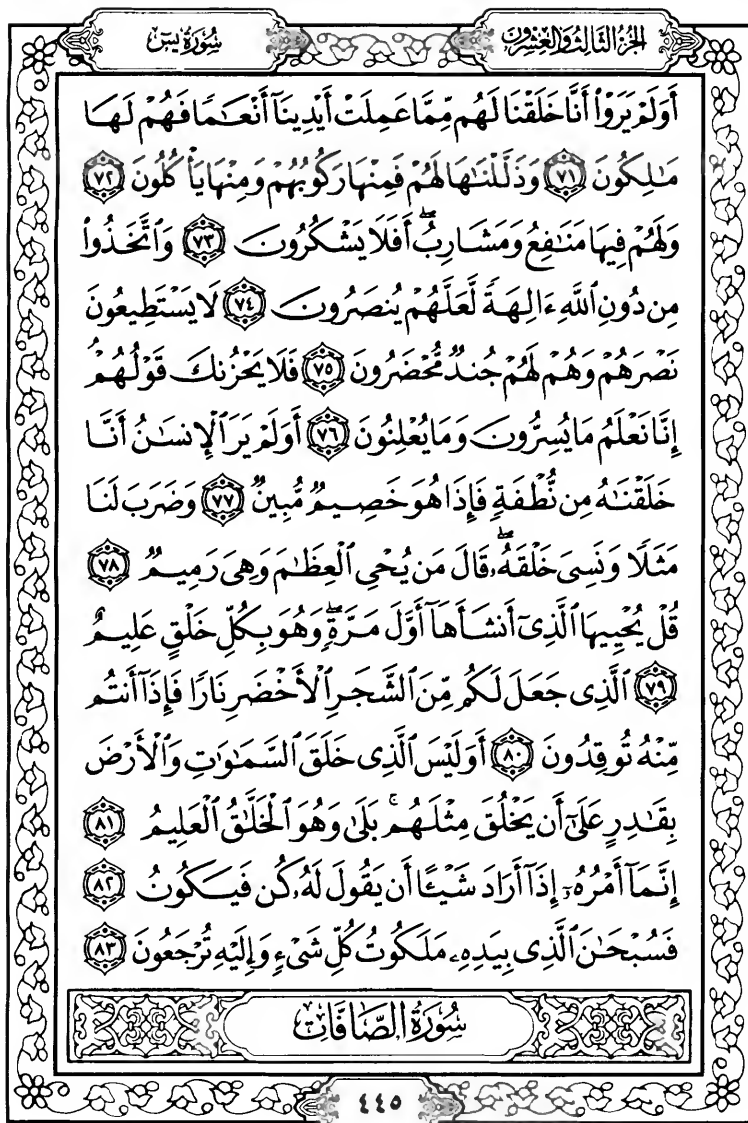 الجزء الثالث والعشرون
سورة يس
أَوَلَمْ يَرَوْا۟ أَنَّا خَلَقْنَا لَهُم مِّمَّا عَمِلَتْ أَيْدِينَآ أَنْعَـٰمًا فَهُمْ لَهَا
مَـٰلِكُونَ ﴿٧١﴾ وَذَلَّلْنَـٰهَا لَهُمْ فَمِنْهَا رَكُوبُهُمْ وَمِنْهَا يَأْكُلُونَ ﴿٧٢﴾
وَلَهُمْ فِيهَا مَنَـٰفِعُ وَمَشَارِبُ ۖ أَفَلَا يَشْكُرُونَ ﴿٧٣﴾ وَٱتَّخَذُوا۟
مِن دُونِ ٱللَّهِ ءَالِهَةً لَّعَلَّهُمْ يُنصَرُونَ ﴿٧٤﴾ لَا يَسْتَطِيعُونَ
نَصْرَهُمْ وَهُمْ لَهُمْ جُندٌ مُّحْضَرُونَ ﴿٧٥﴾ فَلَا يَحْزُنكَ قَوْلُهُمْ
إِنَّا نَعْلَمُ مَا يُسِرُّونَ وَمَا يُعْلِنُونَ ﴿٧٦﴾ أَوَلَمْ يَرَ ٱلْإِنسَـٰنُ أَنَّا
خَلَقْنَـٰهُ مِن نُّطْفَةٍ فَإِذَا هُوَ خَصِيمٌ مُّبِينٌ ﴿٧٧﴾ وَضَرَبَ لَنَا
مَثَلًا وَنَسِىَ خَلْقَهُۥ ۖ قَالَ مَن يُحْىِ ٱلْعِظَـٰمَ وَهِىَ رَمِيمٌ ﴿٧٨﴾
قُلْ يُحْيِيهَا ٱلَّذِىٓ أَنشَأَهَآ أَوَّلَ مَرَّةٍ ۖ وَهُوَ بِكُلِّ خَلْقٍ عَلِيمٌ
﴿٧٩﴾ ٱلَّذِى جَعَلَ لَكُم مِّنَ ٱلشَّجَرِ ٱلْأَخْضَرِ نَارًا فَإِذَآ أَنتُم
مِّنْهُ تُوقِدُونَ ﴿٨٠﴾ أَوَلَيْسَ ٱلَّذِى خَلَقَ ٱلسَّمَـٰوَٰتِ وَٱلْأَرْضَ
بِقَـٰدِرٍ عَلَىٰٓ أَن يَخْلُقَ مِثْلَهُم ۚ بَلَىٰ وَهُوَ ٱلْخَلَّـٰقُ ٱلْعَلِيمُ ﴿٨١﴾
إِنَّمَآ أَمْرُهُۥٓ إِذَآ أَرَادَ شَيْـًٔا أَن يَقُولَ لَهُۥ كُن فَيَكُونُ ﴿٨٢﴾
فَسُبْحَـٰنَ ٱلَّذِى بِيَدِهِۦ مَلَكُوتُ كُلِّ شَىْءٍ وَإِلَيْهِ تُرْجَعُونَ ﴿٨٣﴾
سُورَةُ الصَّافَّات
٤٤٥